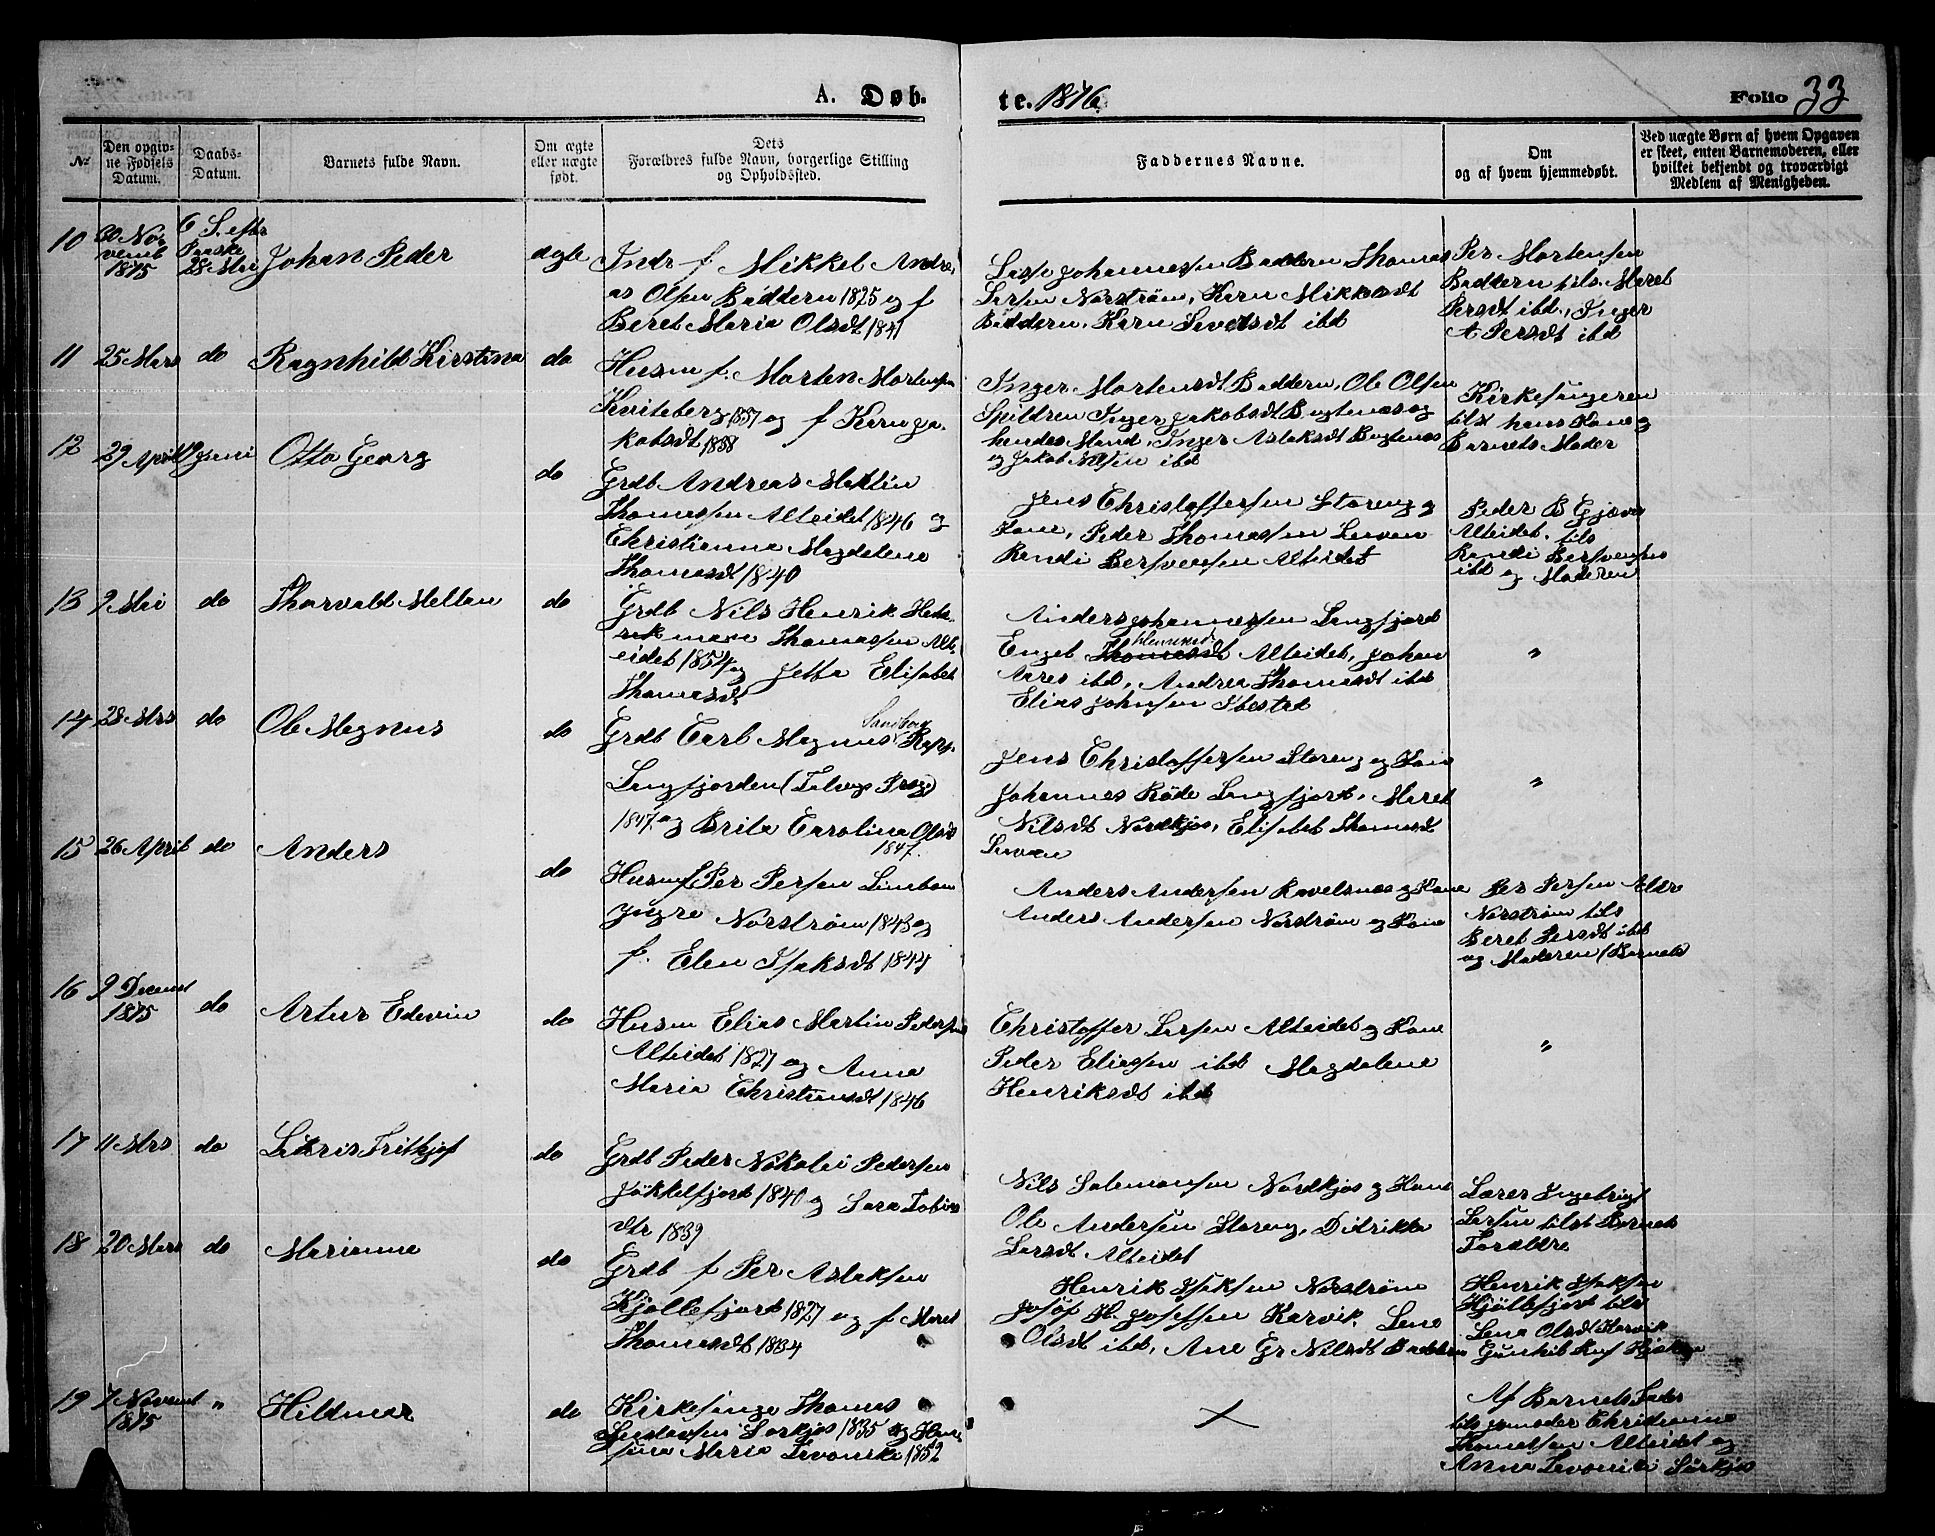 A. Døb. te. 1876. Folio 33
№
Den opgiv-
ne Fødsels
Datum.
Daabs-
Datum.
Barnets fulde Navn.
Om ægte
eller uægte
født.
Dets
Forældres fulde Navn, borgerlige Stilling
og Opholdssted.
Faddernes Navne.
Om
og af hvem hjemmedøbt.
Ved uægte Børn af hvem Opgaven
er skeet, enten Barnemoderen, eller
hvilket bekjendt og troværdigt
Medlem af Menigheden.
10
30 No-
vemb
1875
6 S. efter
Paaske
28 Mai
Johan Peder
ægte
Indr f Mikkel Andre-
as Olsen Baddern 1825 og f
Beret Maria Olsdt 1841
Lasse Johannessen Baddern Thomas
Larsen Norstrøm, Karn Mikkelsdt
Baddern, Karn Sivertsdt ibd
Per Mortensen
Baddern tils. Maret
Persdt ibd, Inger
A Persdt ibd
11
25 Mars
do
Ragnhild Kirstina
do
Husm f. Morten Mortensen
Kviteberg 1837 og f Karn Ja-
kobsdt 1838
Inger Mortensdt Baddern, Ole Olsen
Spildren Inger Jakobsdt Bugtenæs og
hendes Mand, Inger Aslaksdt Bugtenæs
og Jakob Nilsen ibd
Kirkesangeren
tilst hans Kone og
Barnets Moder
12
29 April
Juni
Otto Georg
do
Grdb Andreas Meklin
Thomassen Alteidet 1846 og
Christianna Magdelena
Thomasdt 1840
Jens Christoffersen Storeng og
Kone, Peder Thomassen
Randi Bersvensen Alteidet
Peder B Gjæver
Alteidet tils
Randi Bersvensen
ibd og Moderen
13
9 Mai
do
Thorvald Mellen
do
Grdb Nils Henrik
Thomassen Alt-
eidet 1854 og Jetta Elisabet
Thomasdt
Anders Johannessen Langfjord
Engel Thomasdt Alteidet, Johan
Aares ibd, Andrea Thomasdt ibd
Elias Johnsen Ibestad
"
14
28 Mrs
do
Ole Magnus
do
Grdb Carl Magnus Sandberg
Langfjorden (Talvigs Præg)
1847 og Brita Carolina Olsdt
1847.
Jens Christoffersen Storeng og Kone
Johannes Röde Langfjord, Maret
Nilsdt Nordkjos, Elisabet Thomasdt
"
15
26 April
do
Anders
do
Husm f Per Persen
Yngre Norstrøm 1843 og
f. Elen Isaksdt 1844
Anders Andersen Ravelsnæs og Kone
Anders Andersen Norstrøm og Kone
Per Persen Aldre
Norstrøm tils
Beret Persdt ibd
og Moderen (Barnets)
16
9 Decemb
1875
do
Artur Edevin
do
Husm Elias Martin Pedersen
Alteidet 1827 og Anne
Maria Christiansdt 1846
Christoffer Larsen Alteidet og Kone
Peder Eliassen ibd Magdalene
Henriksdt ibd
"
17
11 Mrs
do
Fritkjof
do
Grdb Peder Nikolai Pedersen
Jökkelfjord 1840 og Sara Tobias
dtr 1839
Nils Salomonsen Nordkjos og Kone
Ole Andersen Storeng, Didrikka
Larsdt Alteidet
Lærer Ingebrigt
Larsen tilst Barnets
Forældre
18
20 Mars
do
Marianna
do
Grdb f Per Aslaksen
Kjöllefjord 1827 og f Maret
Thomasdt 1834
Henrik Isaksen Norstrøm
Josøf H. Josefsen Karvik, Lena
Olsdt ibd, Ane Gr Nilsdt Baddern
Henrik Isaksen
Kjöllefjord tils
Lena Olsdt Karvik
19
7 Novemb
1875
"
Hildmar
do
Kirkesanger Thomas
Gustavsen Sørkjos 1835 og Han-
sine Maria 1852
×
Af Barnets Fader
tils Jomoder Christianna
Thomassen Alteidet og
Anna Sørkjos